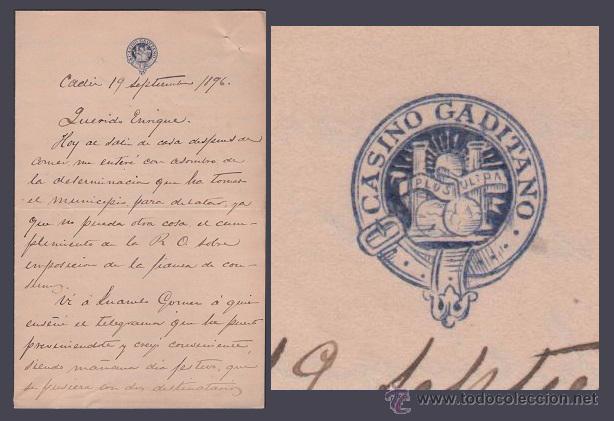 CASINO GADITANO
Cadiz 19 Septiembre 1896.
Querido Enrique.
Hoy al salir de casa despues de
comer me enteré con asombro de
la determinacion que ha tomado
el municipio, para dilatar, ya
que no pueda otra cosa, el cum-
plimiento de la R. O. sobre
imposicion de la fianza de con-
sumos.
Vi á Gomez á quien
enseñé el telegrama que ha puesto
previniendote y creyó conveniente,
siendo mañana dia festivo, que
se pusiera con dos destinatarios
CASINO GADITANO.
PLUS ULTRA
19 Septie
www.todocoleccion.net